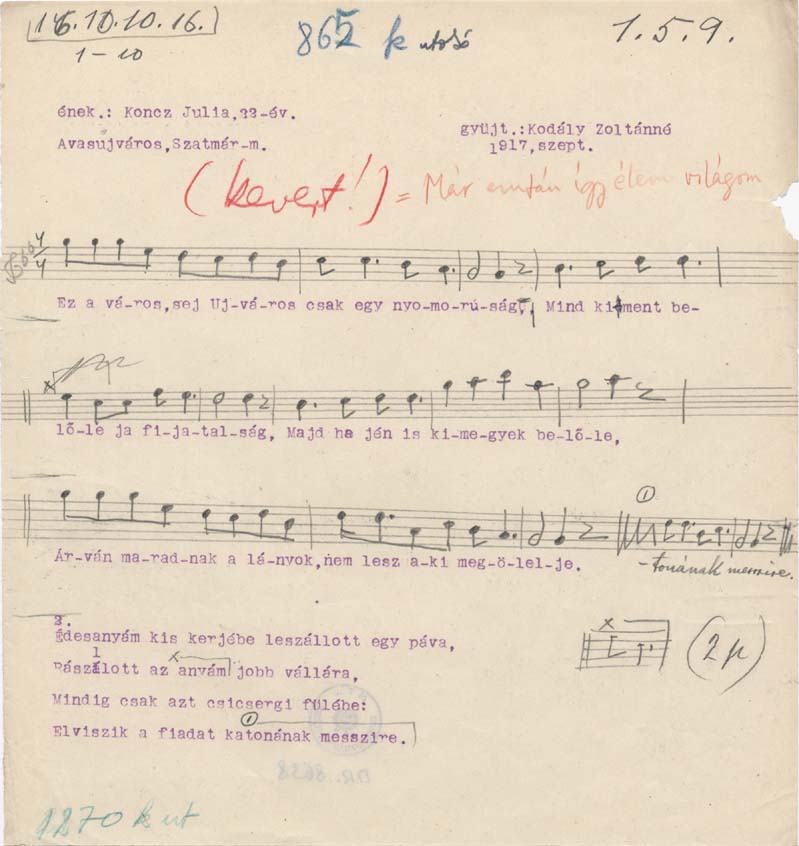 16.10.10.16.
1-10
865 k utolsó
1.5.9.
ének.: Koncz Julia,22-év.
Avasujváros,Szatmár-m.
gyüjt.:Kodály Zoltánné
1917,szept.
(kevert!) = Már ezután így élem világom
4/4
Ez a vá-ros,sej Uj-vá-ros csak egy nyo-mo-rú-ság, Mind kiment be-
x
lő-le ja fi-ja-tal-ság, Majd ha jén is ki-me-gyek be-lő-le,
1
Ár-ván ma-rad-nak a lá-nyok,nem lesz a-ki meg-ö-lel-je.
-tonának messzire.
2.
Édesanyám kis kerjébe leszállott egy páva,
Rászállott az anyám jobb vállára,
x
Mindig csak azt csicsergi fülébe:
1
Elviszik a fiadat katonának messzire.
x
(2p)
DR. 8638
1270 k ut